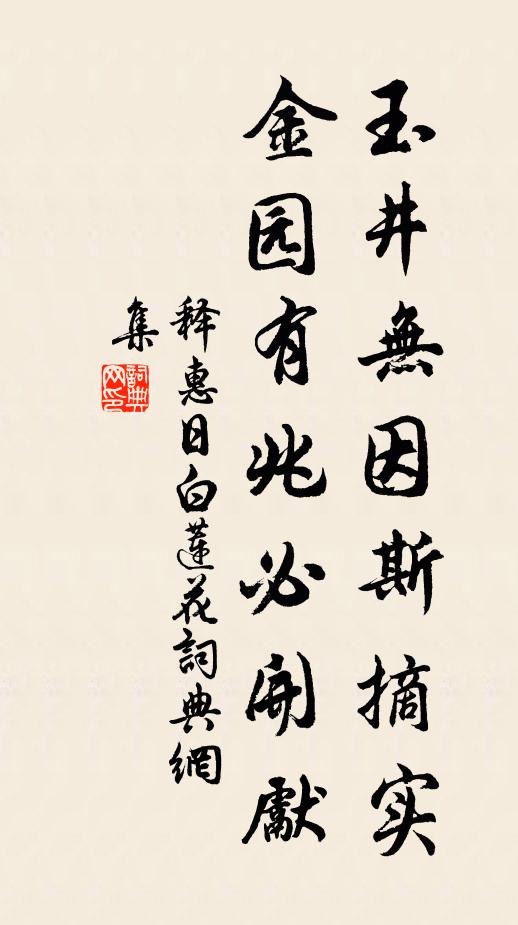 玉井無因斯摘实
金园有兆必開獻
释惠日白蓮花詞典網
集
詞典网印